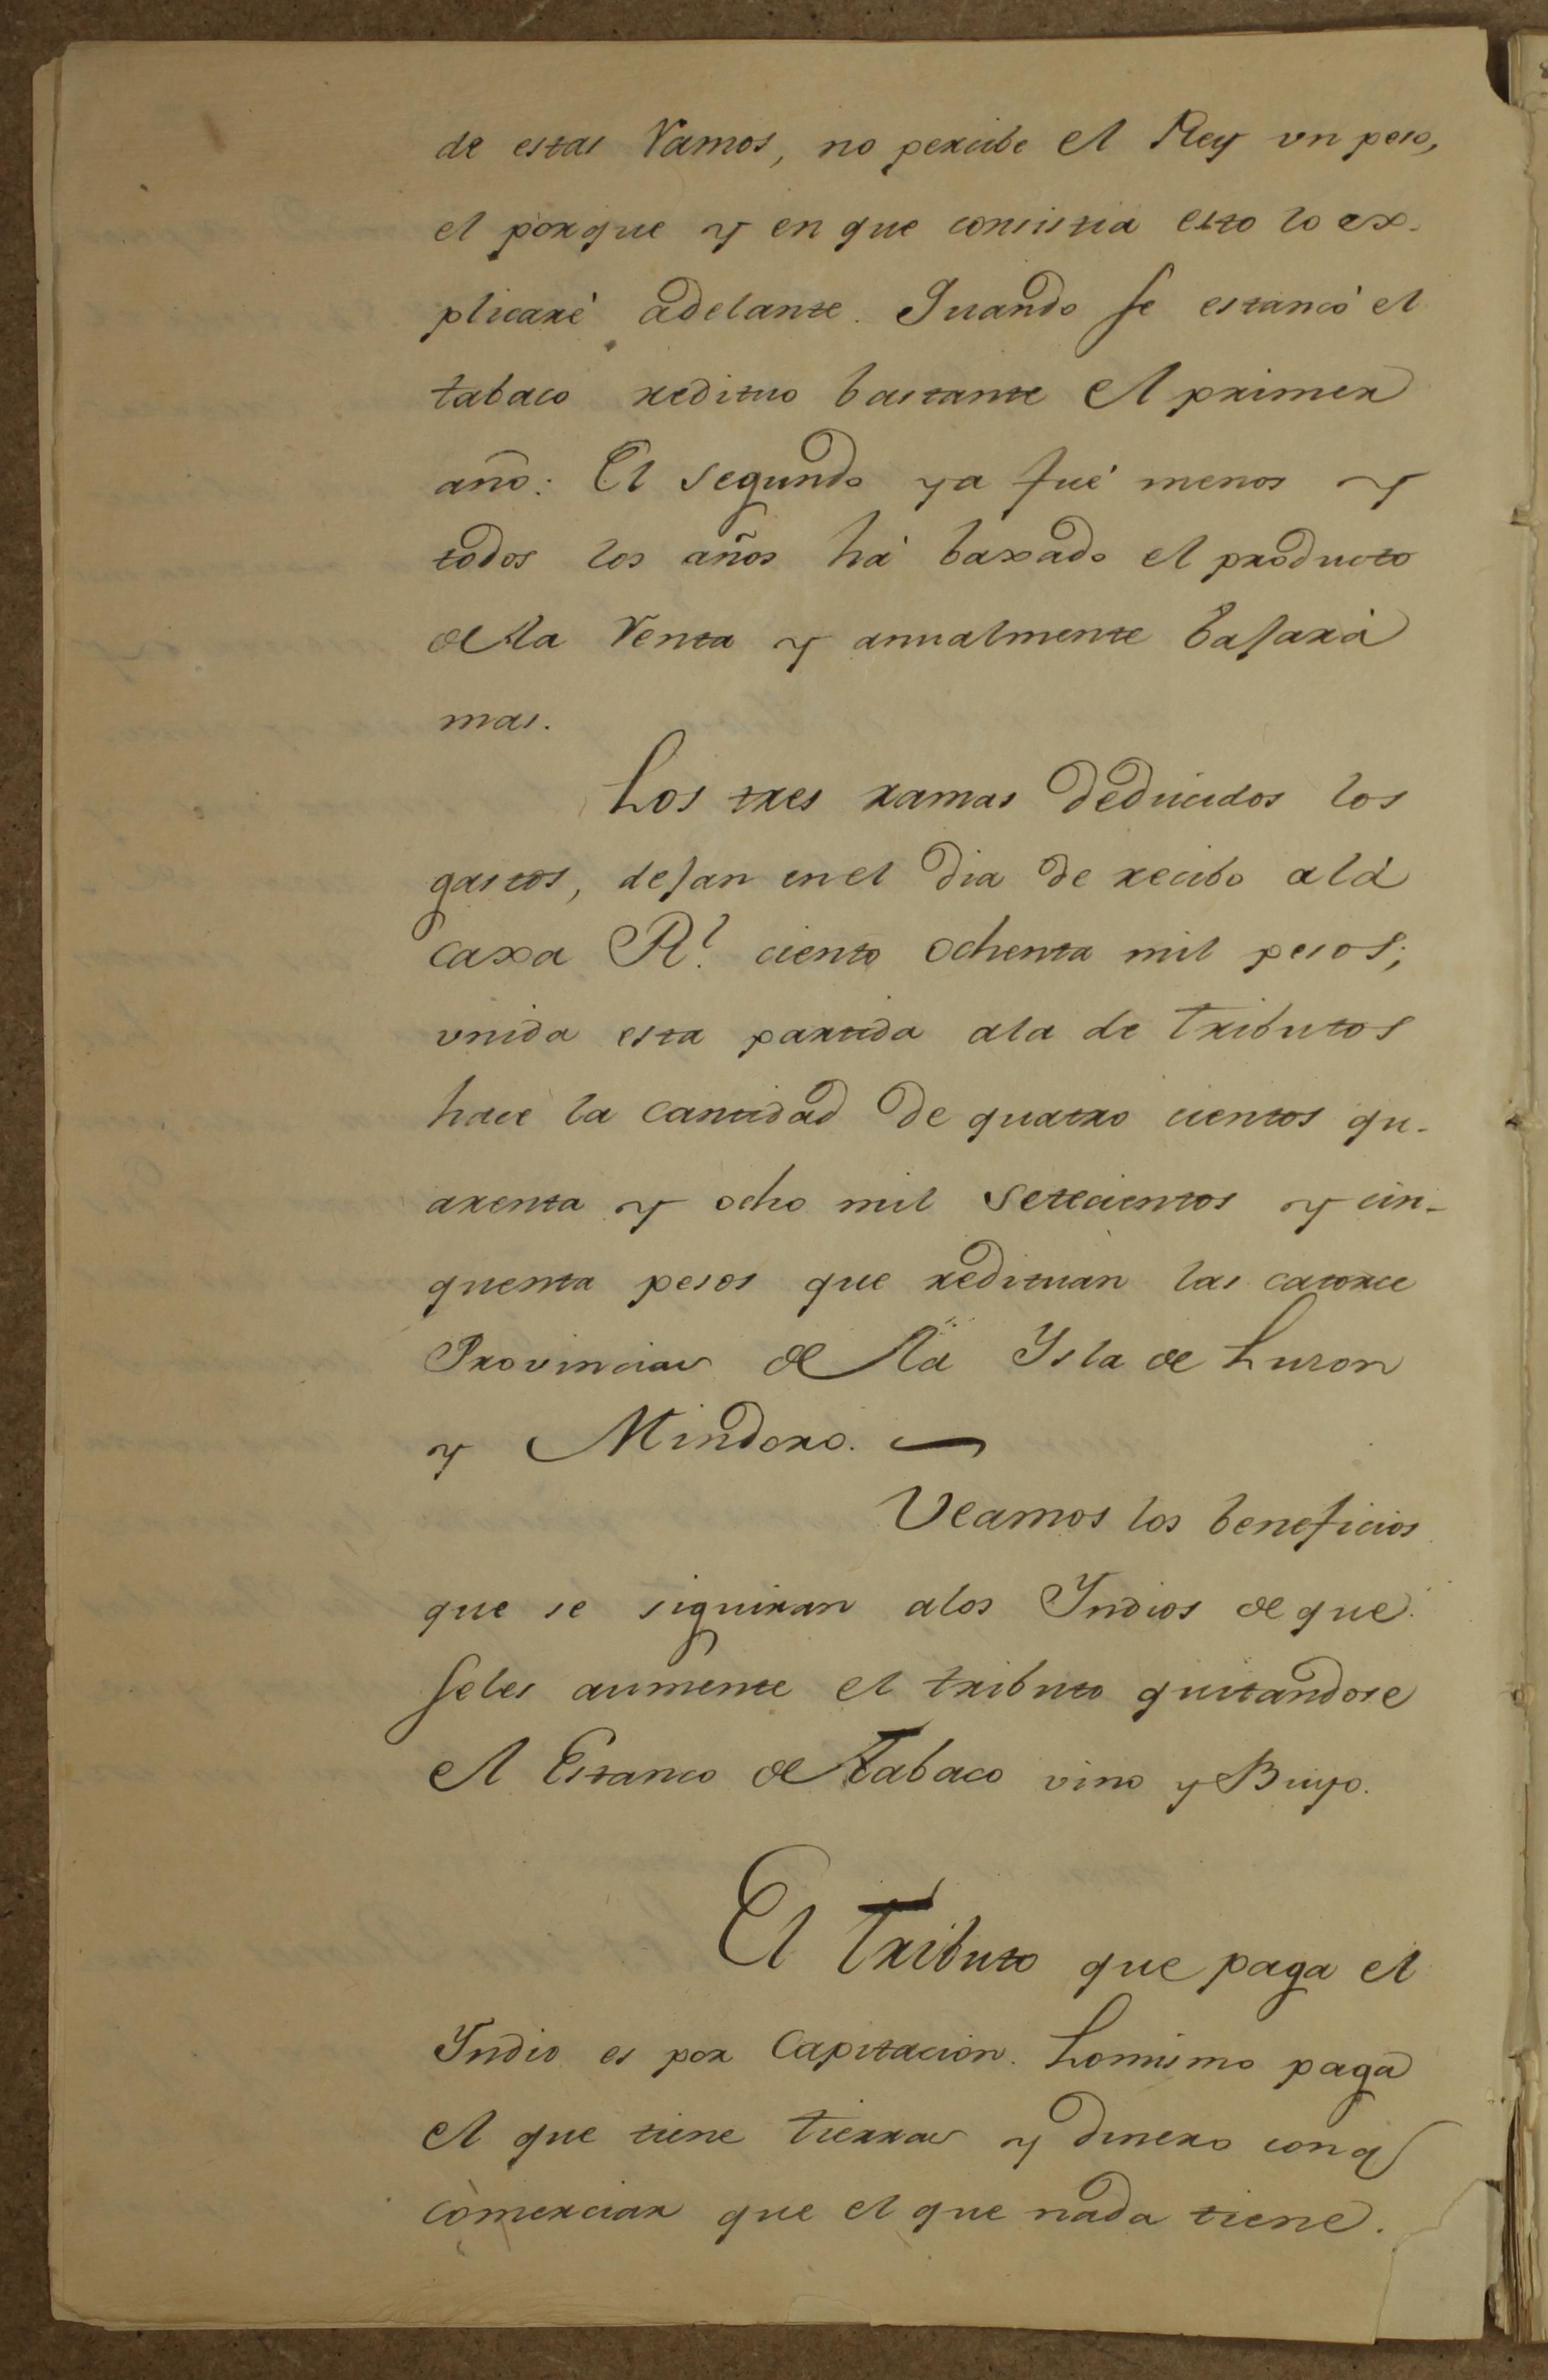 de estas Ramos, no percibe el Rey un peso,
el porque y en que consistia esto lo ex-
plicaré adelante. Quando se estancó el
tabaco redituo bastante el primer
año: El segundo ya fué menos y
todos los años há baxado el producto
de la Venta y anualmente bajará
mas.
Los tres ramas deducidos los
gastos, dejan en el dia de recibo a la
caxa Rl. ciento ochenta mil pesos;
unida esta partida ala de tributos
hace la cantidad de quatro cientos qu-
arenta y ocho mil setecientos y cin-
quenta pesos que redituan las catorce
Provincias de la Ysla de Luzon
y Mindoro.
Veamos los beneficios
que se siguiran alos Yndios de que
seles aumente el tributo quitandose
el Estanco de Tabaco vino y Buyo.
El Tributo que paga el
Yndio es por Capitacion. Lo mismo paga
el que tiene tierras y dinero con q
comerciar que el que nada tiene.